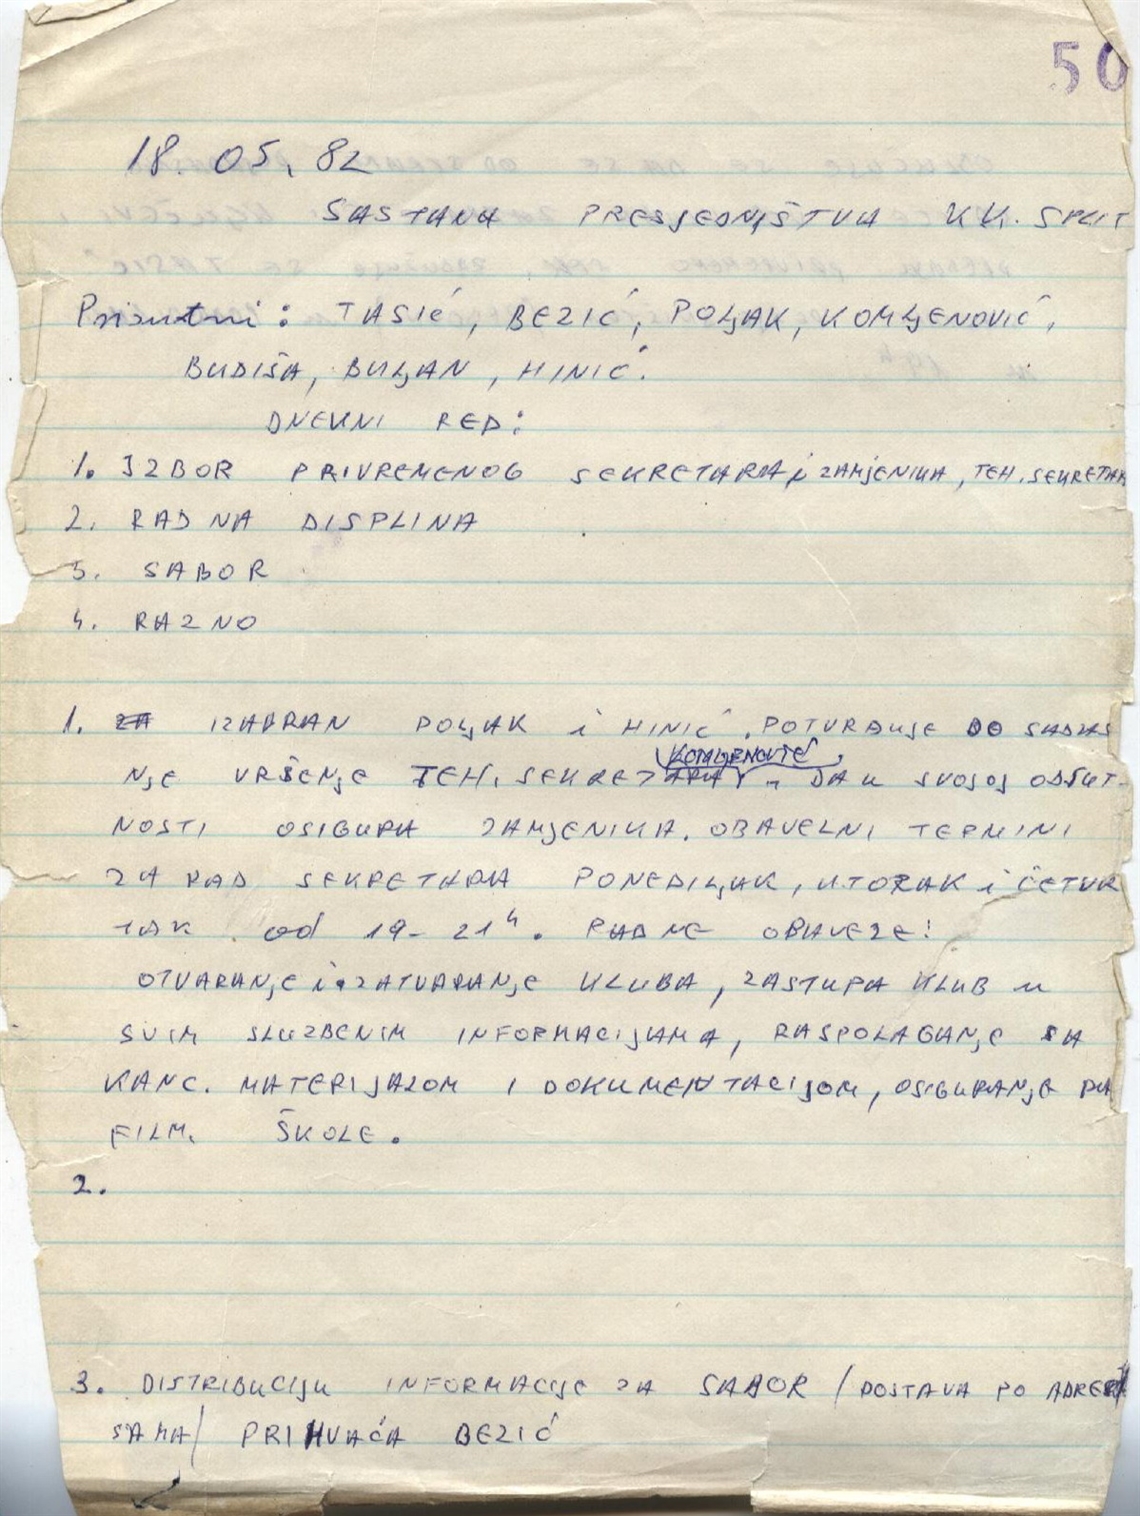 50
18. 05. 82
SASTANA PRESJEDNIŠTVA KK. SPLIT
Prisutni: TASIĆ, BEZIĆ, POLJAK, KOMLJENOVIĆ,
BUDIŠA, BULJAN, HINIĆ.
DNEVNI RED:
1. IZBOR PRIVREMENOG SEKRETARA i ZAMJENIKA, TEH. SEKRETAR
2. RADNA DISPLINA
3. SABOR
4. RAZNO
1. ZA IZABRAN POLJAK i HINIĆ. POTVRĐUJE DO SADAŠ
KOMLJENOVIĆ
NJE VRŠENJE TEH. SEKRETARA - DA u SVOJOJ ODSUT-
NOSTI OSIGURA ZAMJENIKA. OBAVEZNI TERMINI
ZA RAD SEKRETARA PONEDILJAK, UTORAK i ČETVR
TAK od 19-21h. RADNE OBAVEZE:
OTVARANJE i ZATVARANJE KLUBA, ZASTUPA KLUB u
SVIM SLUZBENIM INFORMACIJAMA, RASPOLAGANJE SA
KANC. MATERIJALOM I DOKUMENTACIJOM, OSIGURANJE RA
FILM. ŠKOLE.
2.
3. DISTRIBUCIJU INFORMACIJE ZA SABOR / DOSTAVA PO ADRE
SAMA/ PRIHVAĆA BEZIĆ